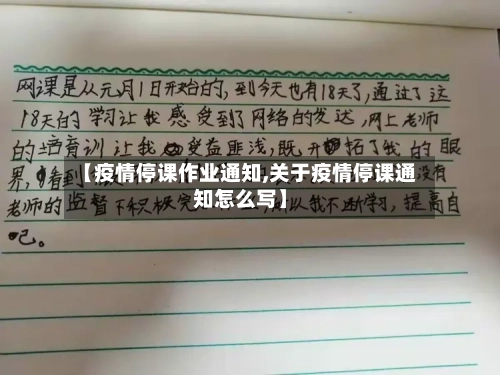 网课是从元月1日开始的,到今天也有18天了,通过了这
18天的学习让我感受到了网络的发达,网上老师
的培育训让我受益匪浅,既开拓了我的眼
界,看到
【疫情停课作业通知,关于疫情停课通
知怎么写】
没有
老师的监督下积极完
以我不断学习,提高自
己。